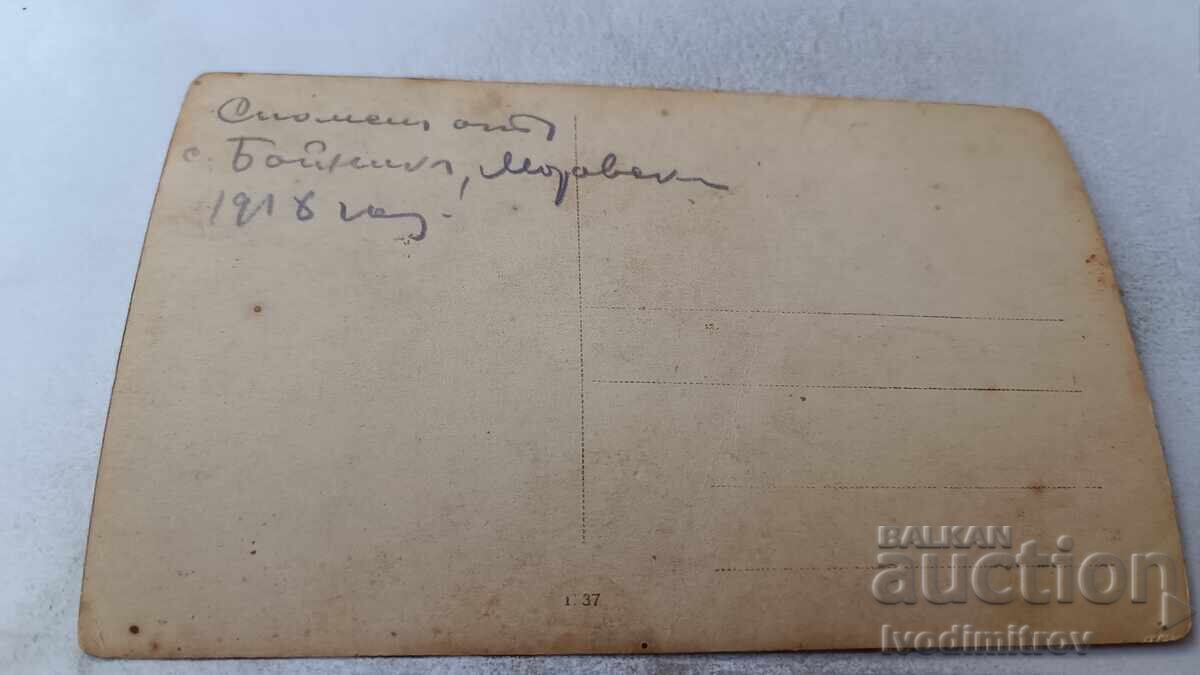 Споменъ отъ
с. Бойникъ, Моравски
1918 год.
37
BALKAN
auction
Ivodimitrov